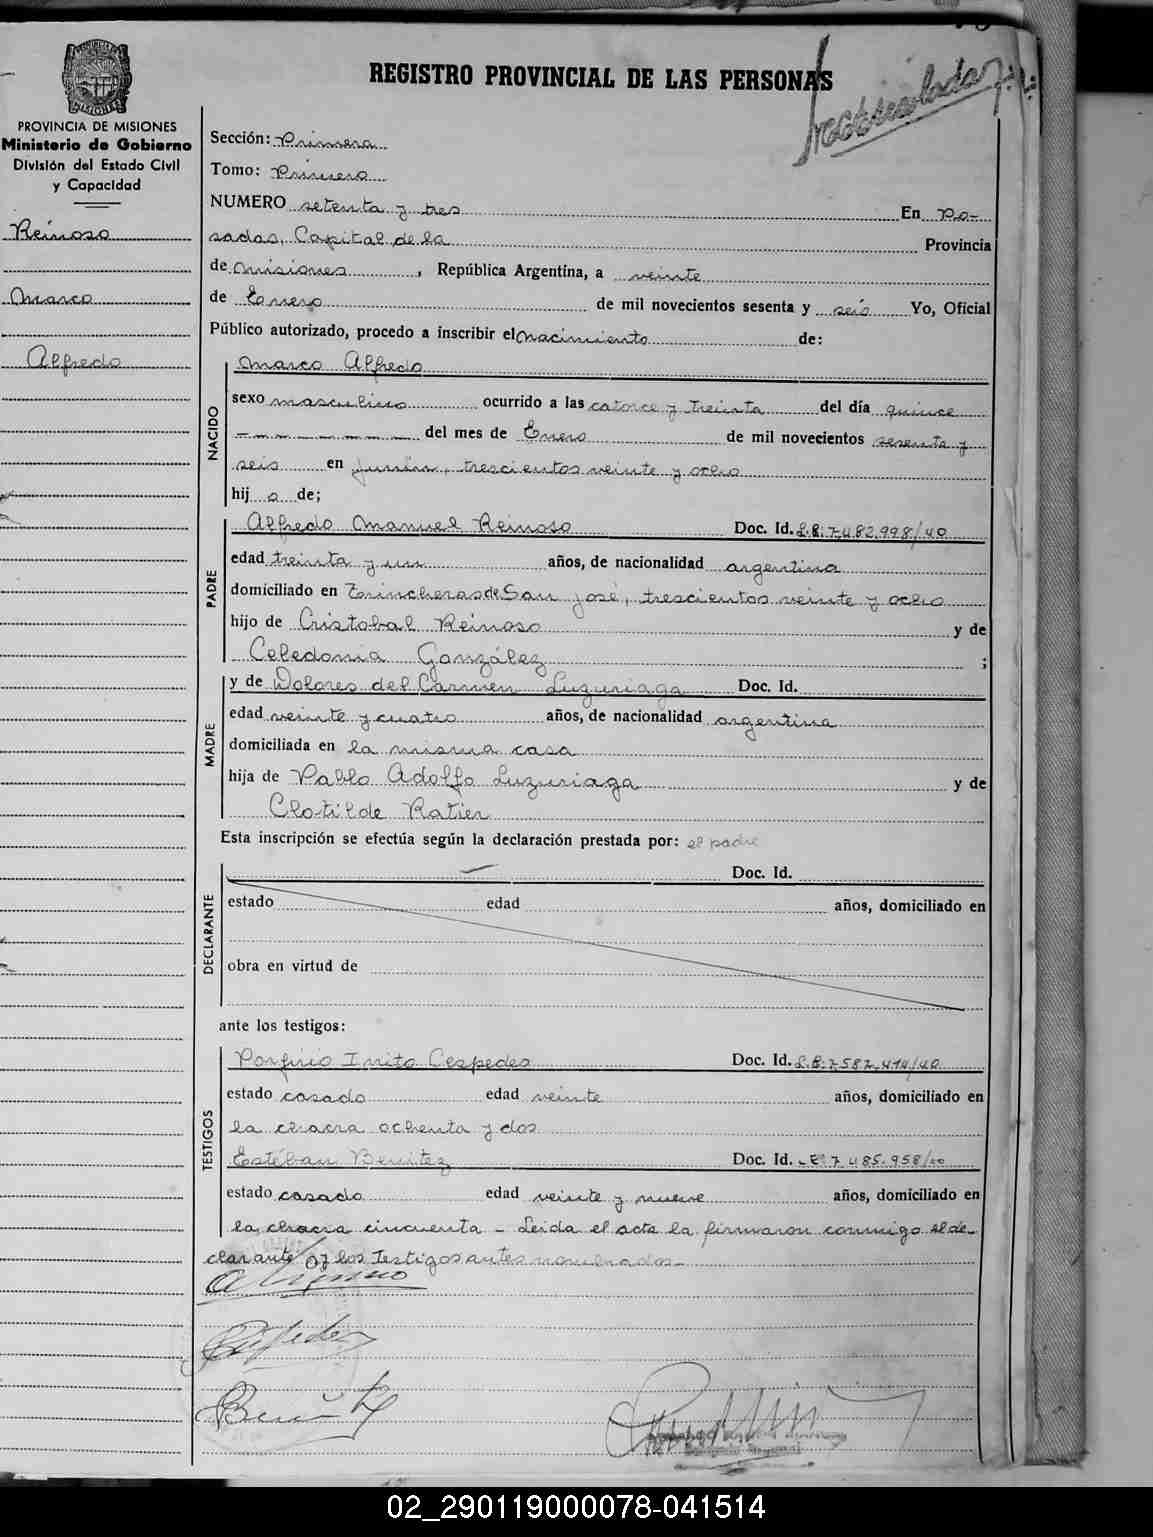 REGISTRO PROVINCIAL DE LAS PERSONAS
Matriculado
PROVINCIA DE MISIONES
Ministerio de Gobierno
División del Estado Civil
y Capacidad
Reinoso
Marco
Alfredo
Sección: Primera
Tomo: Primero
NUMERO setenta y tres En Po-
sadas, Capital de la Provincia
de Misiones, República Argentina, a veinte
de Enero de mil novecientos sesenta y seis Yo, Oficial
Público autorizado, procedo a inscribir el nacimiento de:
NACIDO
Marco Alfredo
sexo masculino ocurrido a las catorce y treinta del día quince
del mes de Enero de mil novecientos sesenta y
seis en Junín, trescientos veinte y ocho
hij o de;
PADRE
Alfredo Manuel Reinoso Doc. Id. L.E. 7.482.998/40
edad treinta y un años, de nacionalidad argentina
domiciliado en Trincheras de San José, trescientos veinte y ocho
hijo de Cristobal Reinoso y de
Celedonia González ;
MADRE
y de Dolores del Carmen Luzuriaga Doc. Id.
edad veinte y cuatro años, de nacionalidad argentina
domiciliada en la misma casa
hija de Pablo Adolfo Luzuriaga y de
Clotilde Ratier
Esta inscripción se efectúa según la declaración prestada por: el padre
DECLARANTE
Doc. Id.
estado edad años, domiciliado en
obra en virtud de
ante los testigos:
TESTIGOS
Porfirio Cespedes Doc. Id. L.E. 7.587.414/40
estado casado edad veinte años, domiciliado en
la chacra ochenta y dos
Estéban Benitez Doc. Id. L.E. 7.485.958/
estado casado edad veinte y nueve años, domiciliado en
la chacra cincuenta - Leida el acta la firmaron conmigo el de-
clarante y los Testigos antes nombrados-
02_290119000078-041514